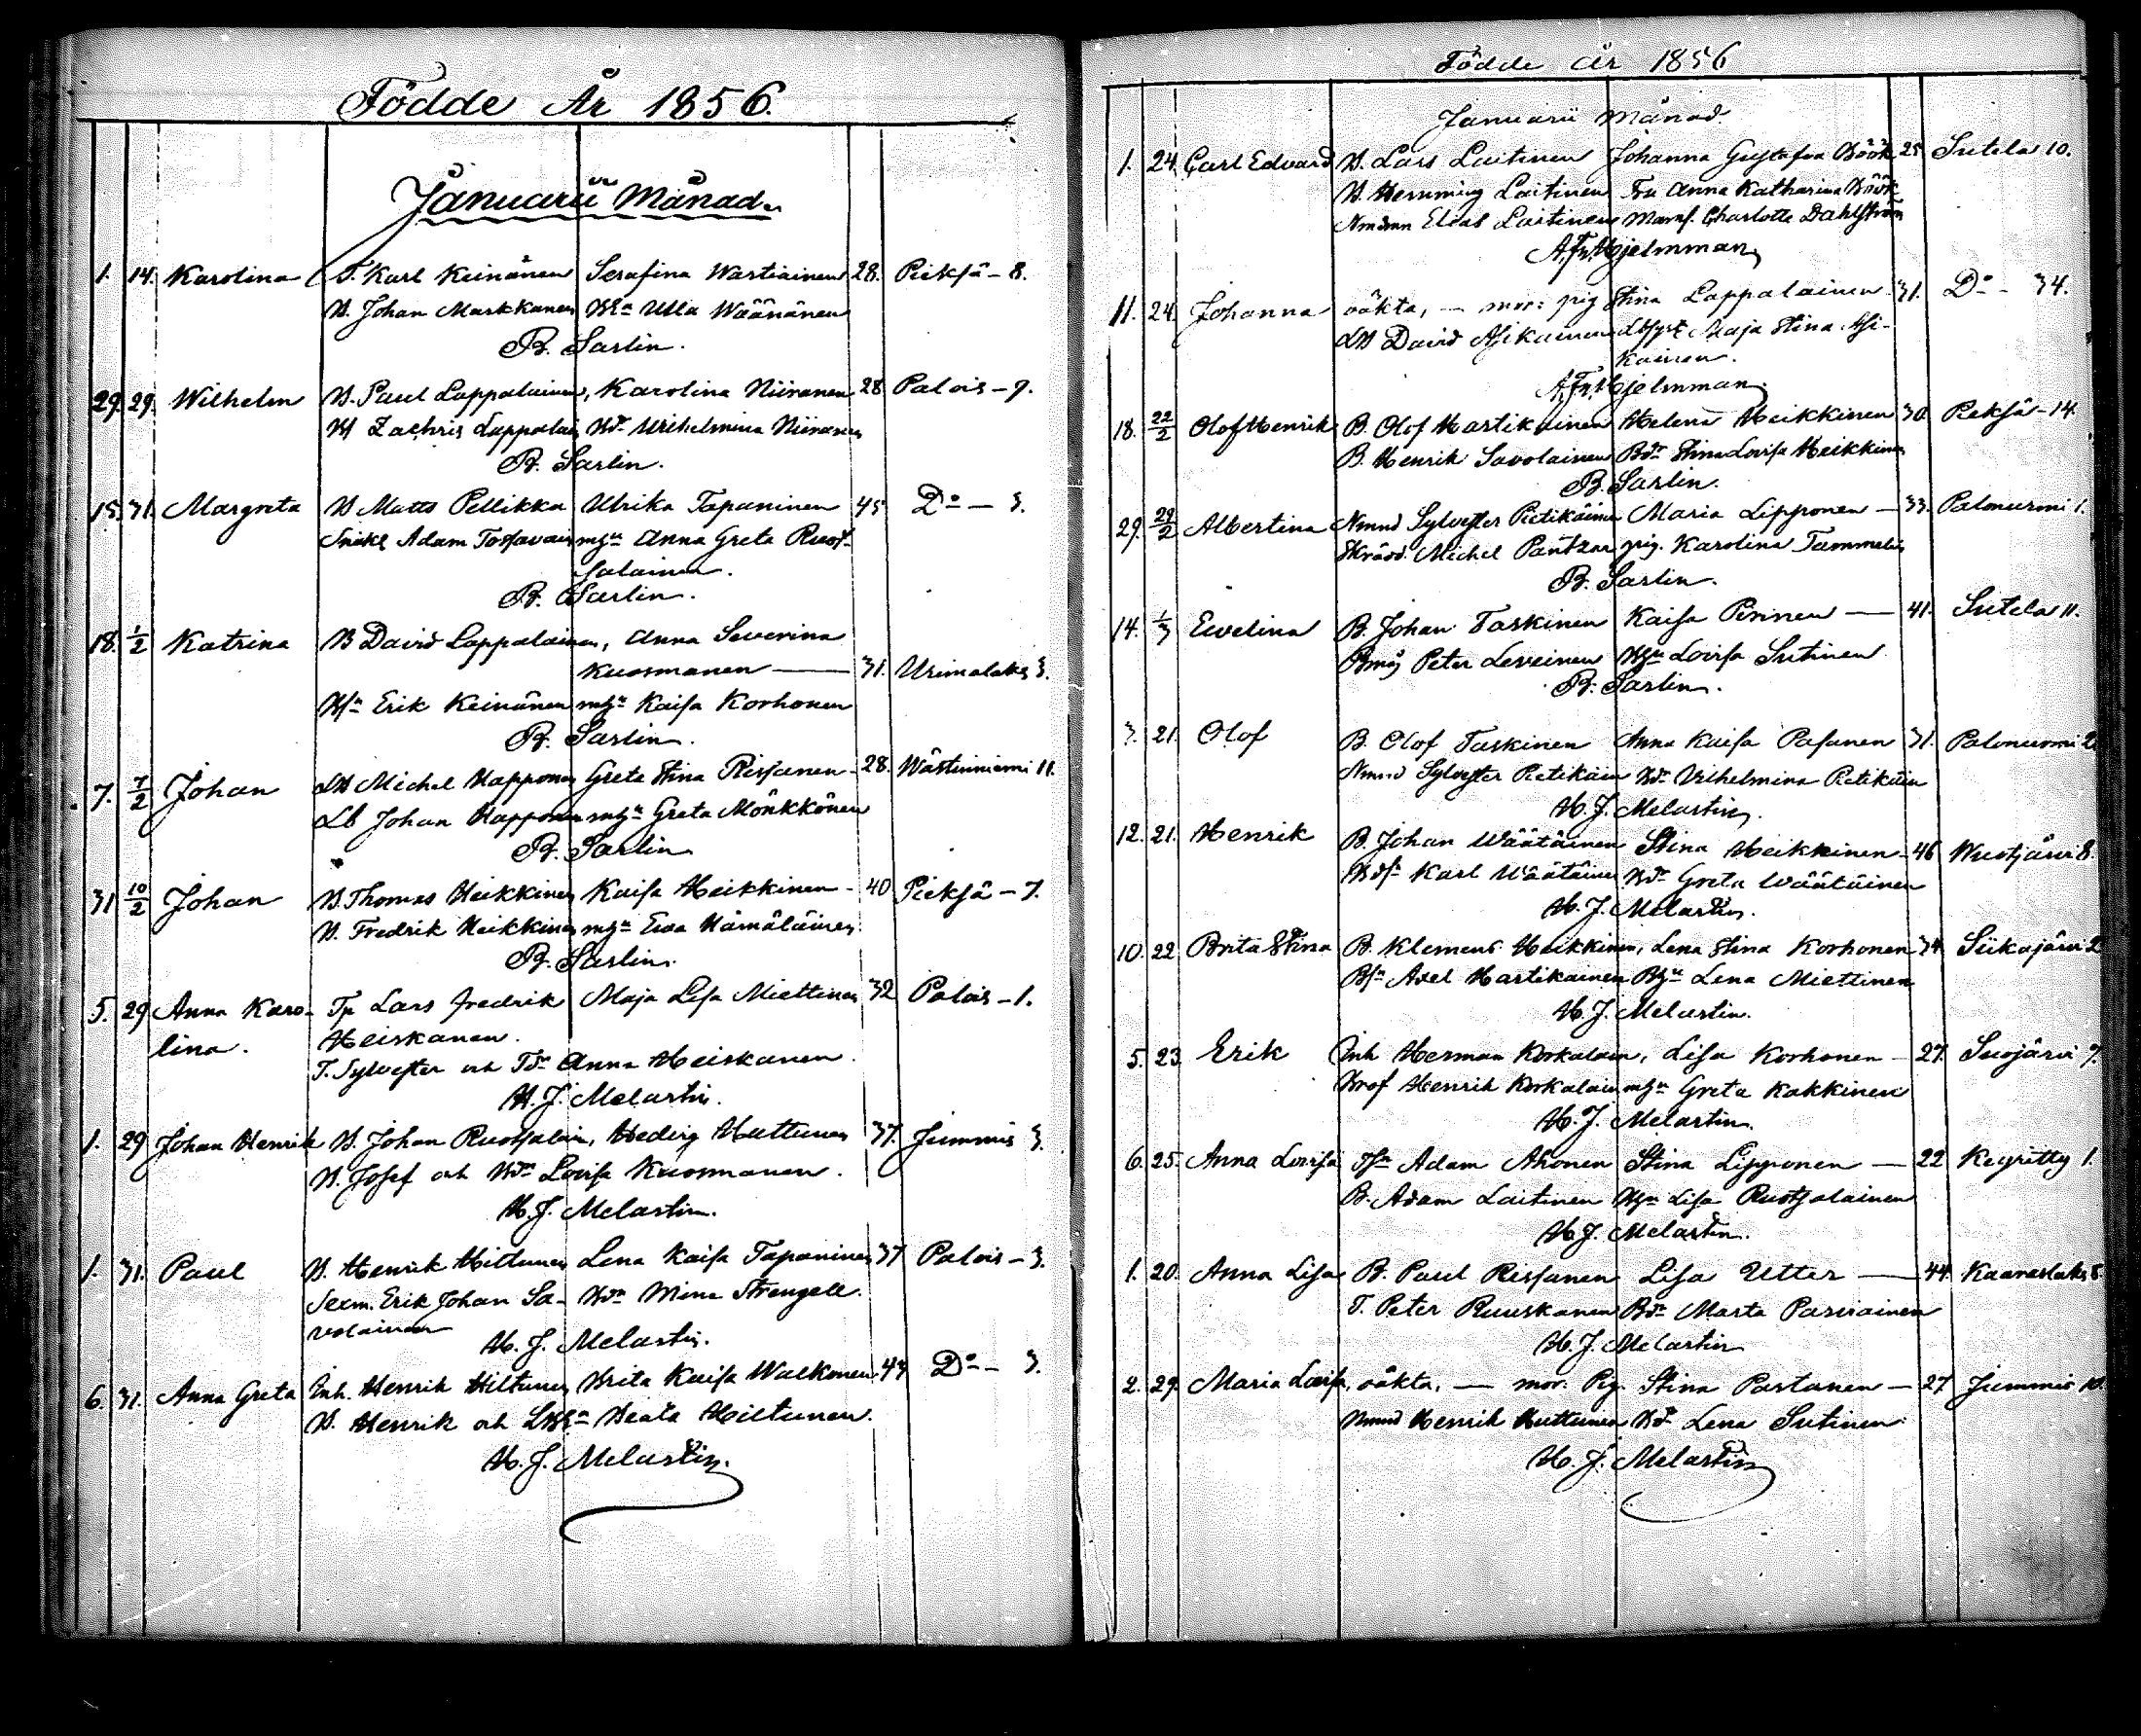 Födde År 1856.
Januarii Månad.
1. 14. Karolina T. Karl Keinänen Serafina Wartiainen 28. Pieksä - 8.
B. Johan Markkanen Ulla Wäänänen
B. Sarlin.
29. 29. Wilhelm B. Paul Lappalainen, Karolina Niiranen 28 Palois - 7.
Zachris Lappalain Wilhelmina Niiranen
B. Sarlin.
15. 31. Margreta B Matts Pellikka Ulrika Tapaninen 45 Do - 3.
Adam Tossavain mgn Anna Greta Ruot-
salainen.
B. Sarlin.
18. 1/2 Katrina B David Lappalainen, Anna Severina
Kuosmanen — 31. Urimolaks 3.
Bsn Erik Keinänen mgn Kaisa Korhonen
B. Sarlin.
7. 7/2 Johan LB Michel Happonen Greta Stina Rissanen - 28. Wästinniemi 11.
Lb Johan Happonen mgn Greta Mönkkönen
B. Sarlin
31 10/2 Johan B. Thomas Heikkinen Kaisa Heikkinen - 40 Pieksä - 7.
B. Fredrik Heikkinen mgn Ewa Hämäläinen.
B. Sarlin.
5. 29 Anna Karo- Tp Lars Fredrik Maja Lisa Miettinen 32 Palois - 1.
lina. Heiskanen.
T. Sylvester och Tdn Anna Heiskanen.
H. J. Melartin.
1. 29 Johan Henrik B. Johan Ruotsalain, Hedvig Huttunen 37. Jummis 3.
B. Josef och Bdn Lovisa Kuosmanen.
H. J. Melartin.
1. 31. Paul B. Henrik Hiltunen Lena Kaisa Tapaninen 37 Palois - 3.
Erik Johan Sa- Bdn Mina Strengell.
volainen
H. J. Melartin.
6. 31. Anna Greta Inh. Henrik Hiltunen Brita Kaisa Walkonen 44 Do - 3.
B. Henrik och Beata Hiltunen.
H. J. Melartin.
Födde År 1856
Januarii Månad.
1. 24. Carl Edvard B. Lars Laitinen Johanna Gustafva Höök 25 Sutela 10.
B. Hemming Laitinen Fru Anna Katharina Höök
Nmdmn Elias Laitinen Mams. Charlotte Dahlström
A. Fr. Hjelmman
11. 24. Johanna oäkta, — mor: pig Stina Lappalainen. 31. Do - 34.
LB David Asikainen Maja Stina Asi-
kainen.
A. Fr. Hjelmman.
18. 22/2 Olof Henrik B. Olof Hartikainen Helena Heikkinen 30. Pieksä - 14.
B. Henrik Savolainen Bdr Stina Lovisa Heikkinen
B. Sarlin.
29. 29/2 Albertina Nmnd Sylvester Pietikäinen Maria Lipponen — 33. Palonurmi 1.
Skrädd. Michel Pantzar pig. Karolina Tammelin
B. Sarlin.
14. 1/3 Ewelina B. Johan Taskinen Kaisa Pirinen — 41. Sutela 11.
Peter Leveinen Lovisa Sutinen
B. Sarlin.
3. 21. Olof B. Olof Taskinen Anna Kaisa Pasanen 31. Palonurmi 2
Nmnd Sylvester Pietikäin Bdr Vilhelmina Pietikäin
H. J. Melartin.
12. 21. Henrik B. Johan Wäätäinen Stina Heikkinen - 46 Wuotjärvi 8.
Karl Wäätäinen Bdr Greta Wäätäinen
H. J. Melartin.
10. 22 Brita Stina B. Klemens Heikkinen, Lena Stina Korhonen 34 Siikajärvi 2
Bsn Axel Hartikainen Bgn Lena Miettinen
H. J. Melartin.
5. 23. Erik Inh Herman Korkalain, Lisa Korhonen - 27. Suojärvi 7.
Henrik Korkalain mgn Greta Kakkinen
H. J. Melartin.
6. 25. Anna Lovisa Tsn Adam Ahonen Stina Lipponen — 22 Keyritty 1.
B. Adam Laitinen Lisa Ruotsalainen
H. J. Melartin.
1. 20. Anna Lisa B. Paul Rissanen Lisa Utter — 44. Kaaraslaks 5.
T. Peter Ruuskanen Bdn Marta Parviainen
H. J. Melartin
2. 29. Maria Lovisa, oäkta, — mor: Pig. Stina Partanen — 27. Jummis 10.
Nmnd Henrik Huttunen Bdr Lena Sutinen
H. J. Melartin